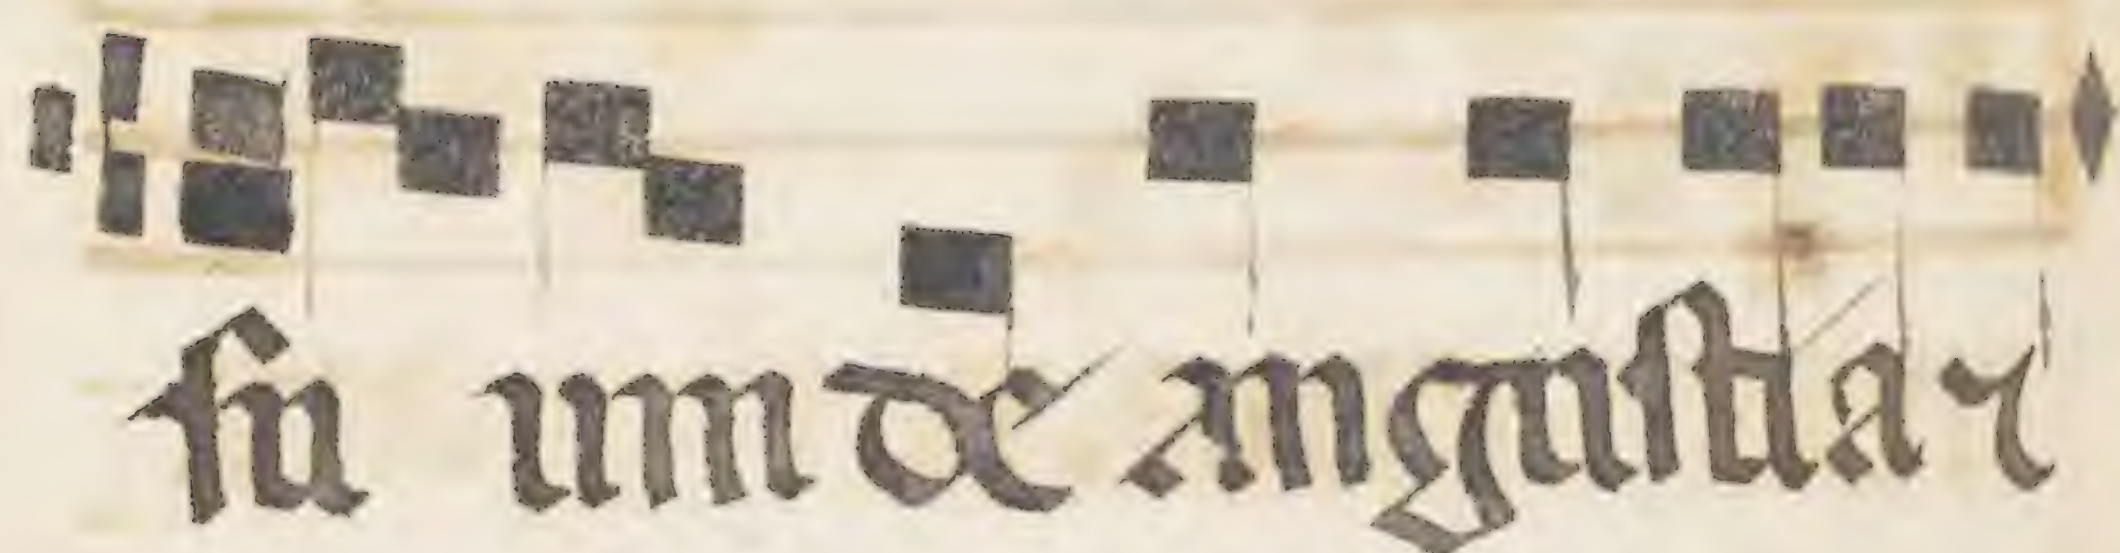 su um de angustia ⁊